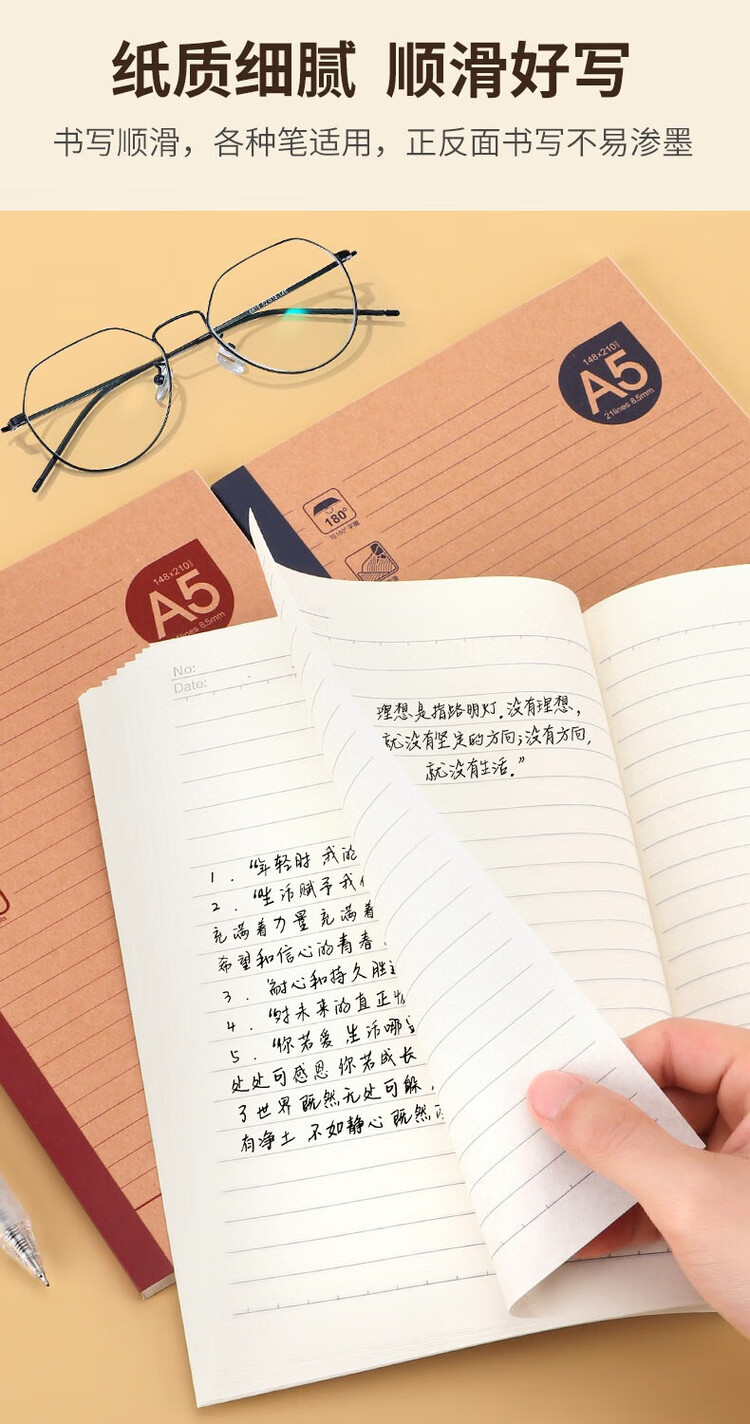 纸质细腻 顺滑好写
书写顺滑，各种笔适用，正反面书写不易渗墨
148×210
A5
21lines 8.5mm
180°
148×210
A5
lines 8.5mm
No:
Date:
理想是指路明灯.没有理想，
就没有坚定的方向;没有方向，
就没有生活.”
1．“年轻时 我的
2．“生活赋予我
充满着力量 充满着
希望和信心的青春
3．“耐心和持久胜
4．“对未来的真正
5．“你若爱 生活哪
处处可感恩 你若成长
了世界 既然无处可躲，
有净土 不如静心 既然